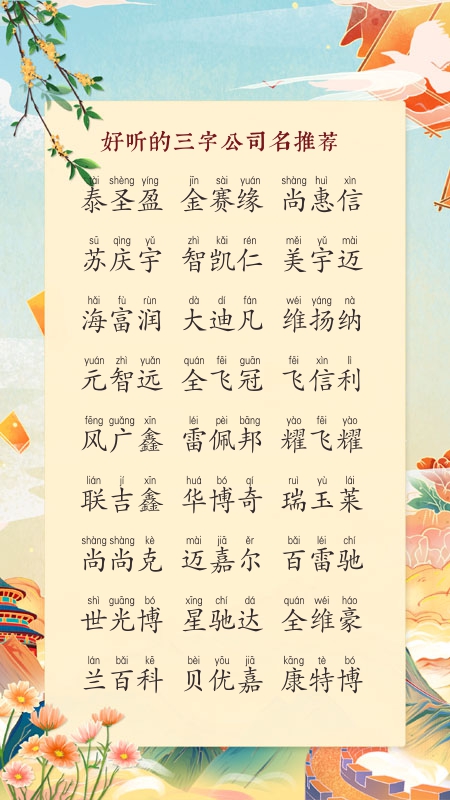 好听的三字公司名推荐
tài shèng yíng jīn sài yuán shàng huì xìn
泰圣盈 金赛缘 尚惠信
sū qìng yǔ zhì kǎi rén měi yǔ mài
苏庆宇 智凯仁 美宇迈
hǎi fù rùn dà dí fán wéi yáng nà
海富润 大迪凡 维扬纳
yuán zhì yuǎn quán fēi guān fēi xìn lì
元智远 全飞冠 飞信利
fēng guǎng xīn léi pèi bāng yào fēi yào
风广鑫 雷佩邦 耀飞耀
lián jí xīn huá bó qí ruì yù lái
联吉鑫 华博奇 瑞玉莱
shàng shàng kè mài jiā ěr bǎi léi chí
尚尚克 迈嘉尔 百雷驰
shì guāng bó xīng chí dá quán wéi háo
世光博 星驰达 全维豪
lán bǎi kē bèi yōu jiā kāng tè bó
兰百科 贝优嘉 康特博